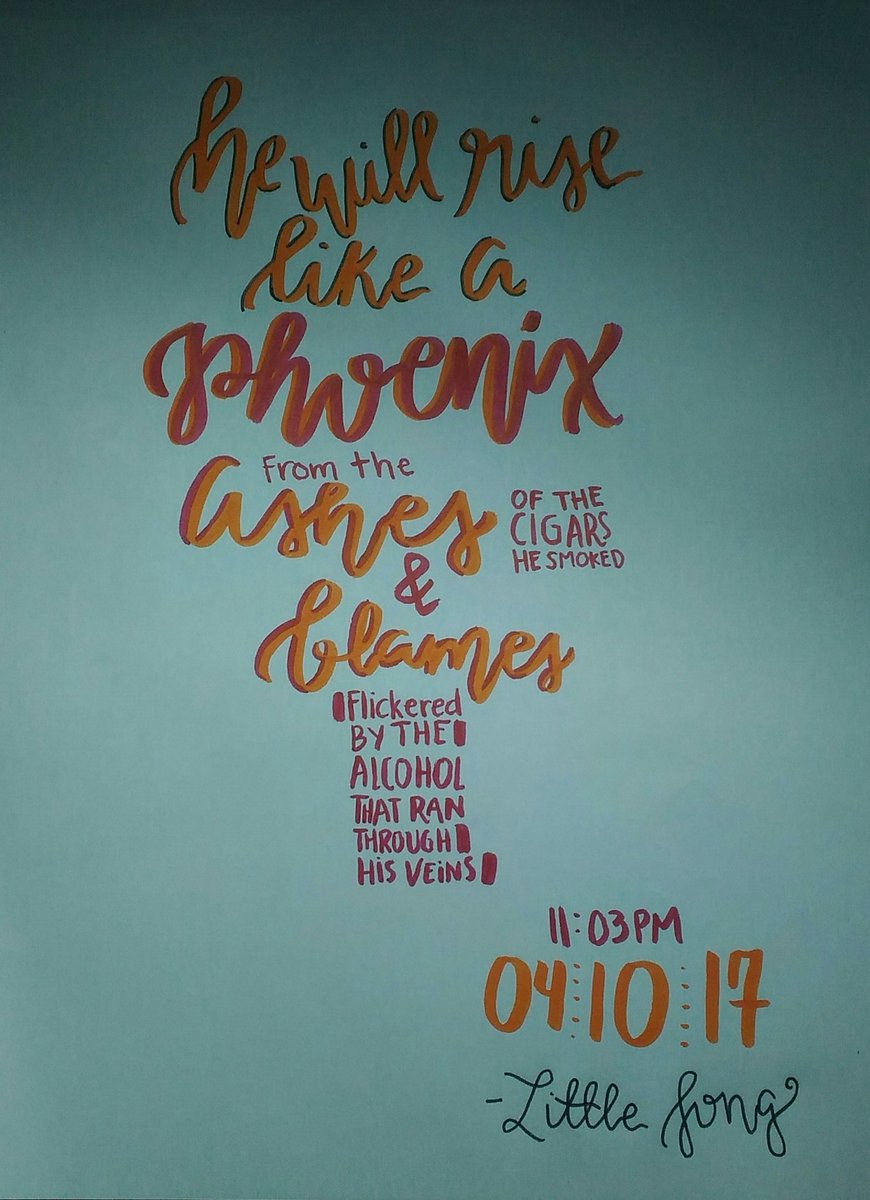 he will rise
like a
phoenix
From the
ashes
OF THE
CIGARS
HE SMOKED
&
blames
Flickered
BY THE
ALCOHOL
THAT RAN
THROUGH
HIS VEINS
11:03PM
04 10 17
-Little